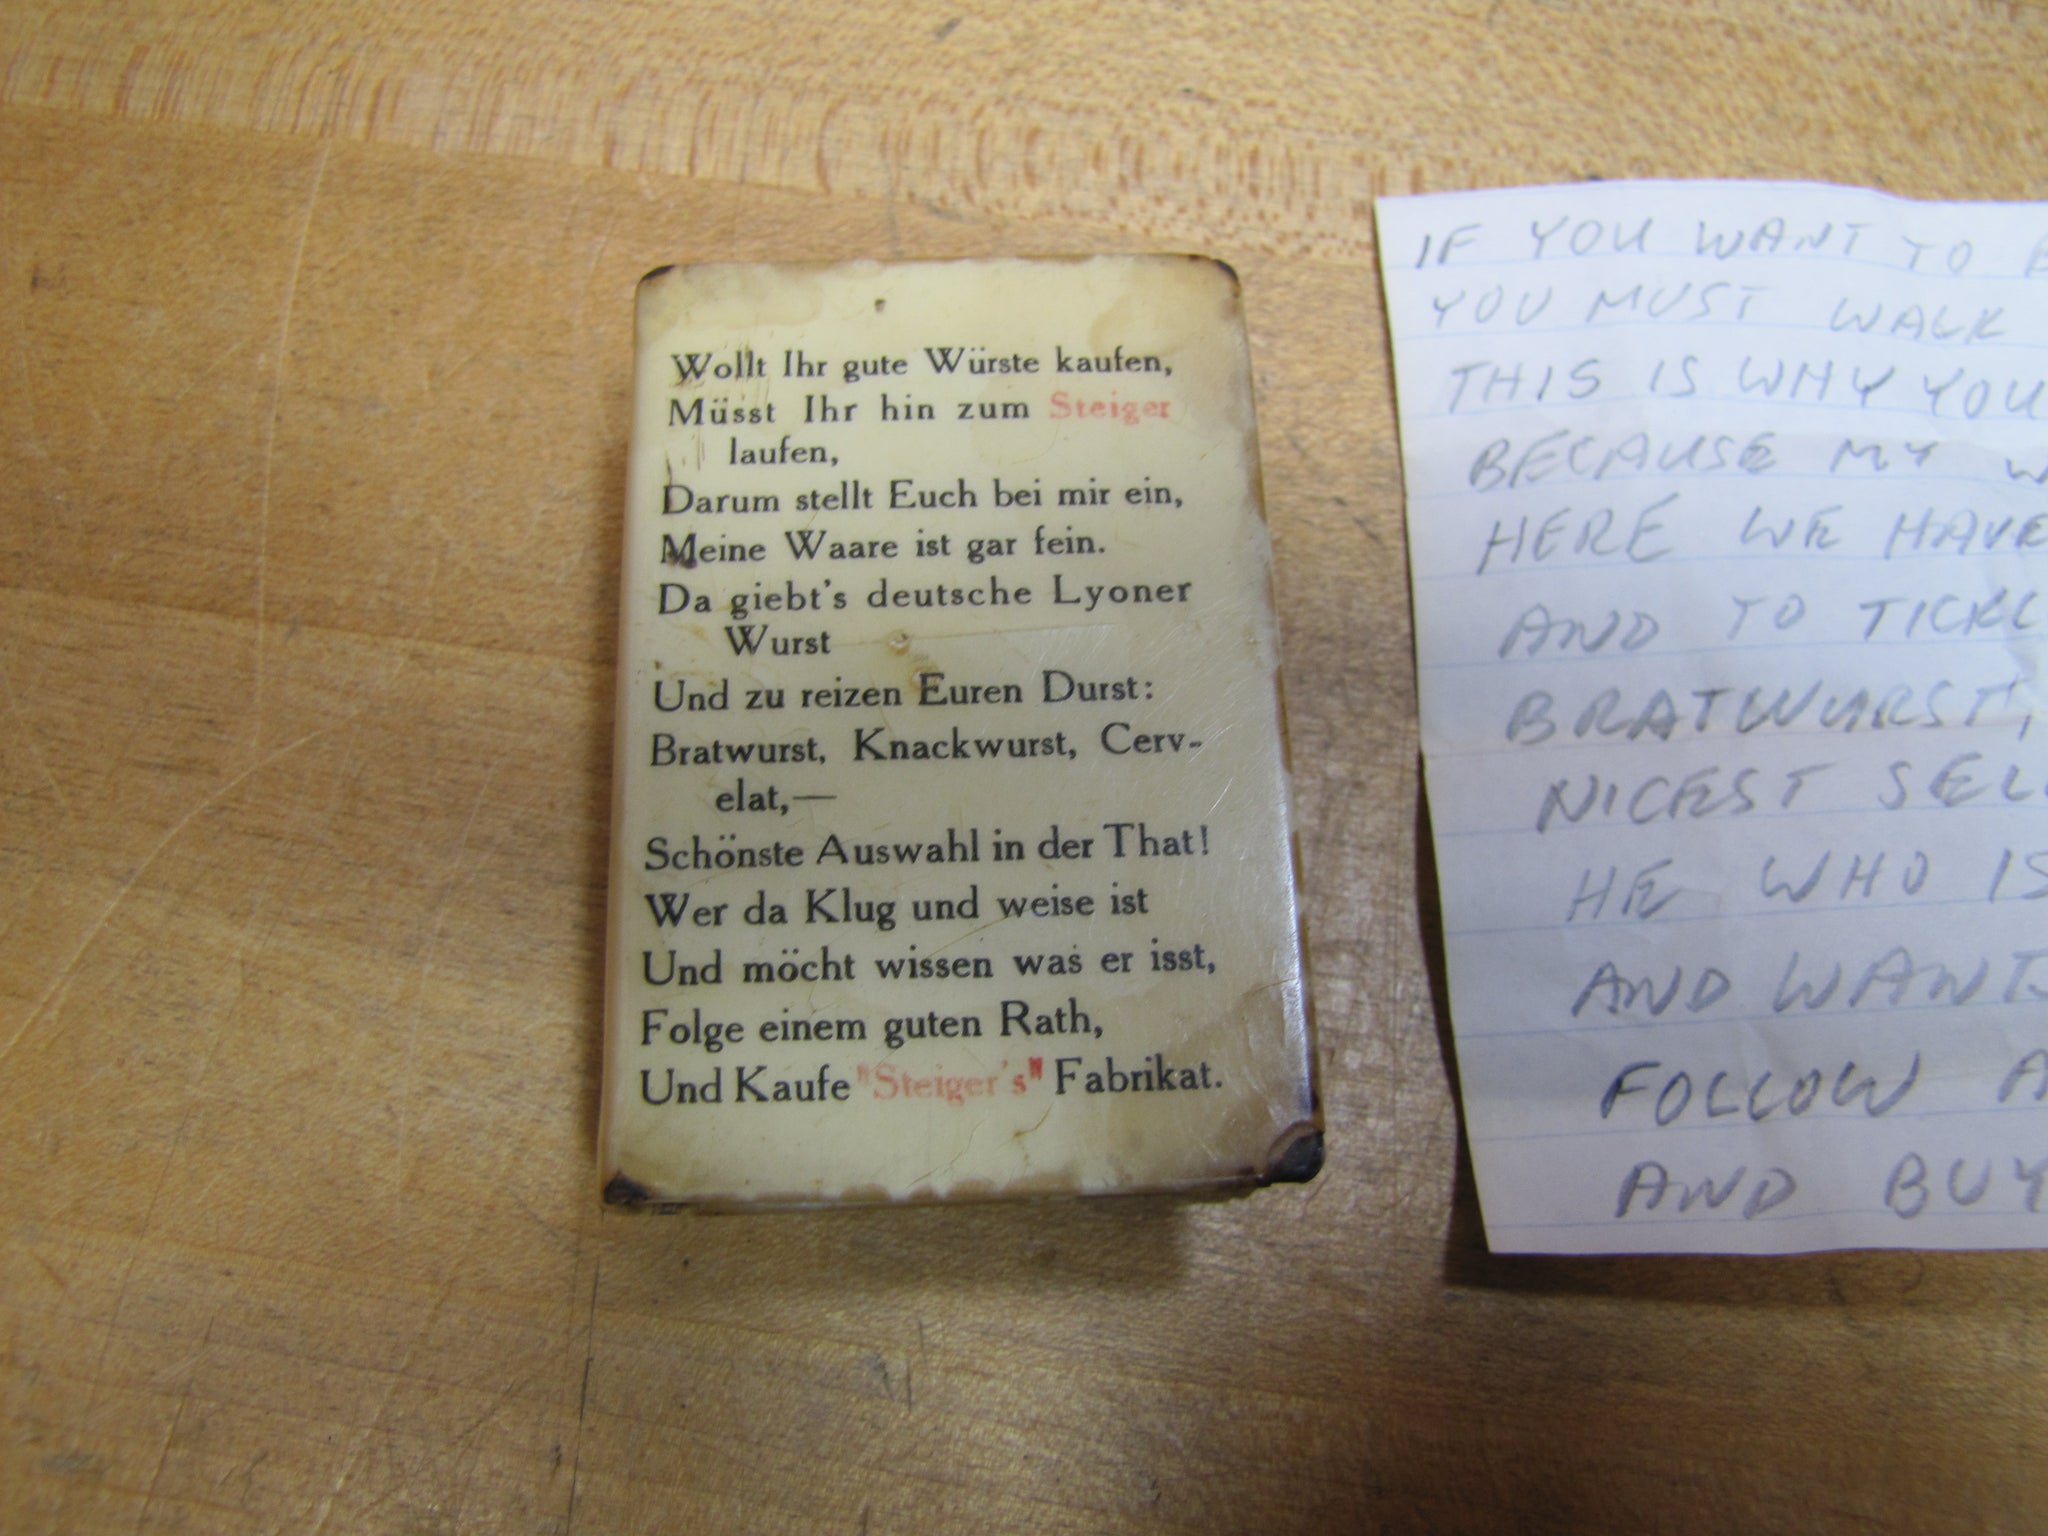 Wollt Ihr gute Würste kaufen,
Müsst Ihr hin zum Steiger
laufen,
Darum stellt Euch bei mir ein,
Meine Waare ist gar fein.
Da giebt's deutsche Lyoner
Wurst
Und zu reizen Euren Durst:
Bratwurst, Knackwurst, Cerv-
elat,—
Schönste Auswahl in der That!
Wer da Klug und weise ist
Und möcht wissen was er isst,
Folge einem guten Rath,
Und Kaufe "Steiger's" Fabrikat.
IF YOU WANT TO
YOU MUST WALK
THIS IS WHY YOU
BECAUSE MY
HERE WE HAVE
AND TO
BRATWURST,
NICEST
HE WHO IS
AND WANTS
FOLLOW
AND BUY